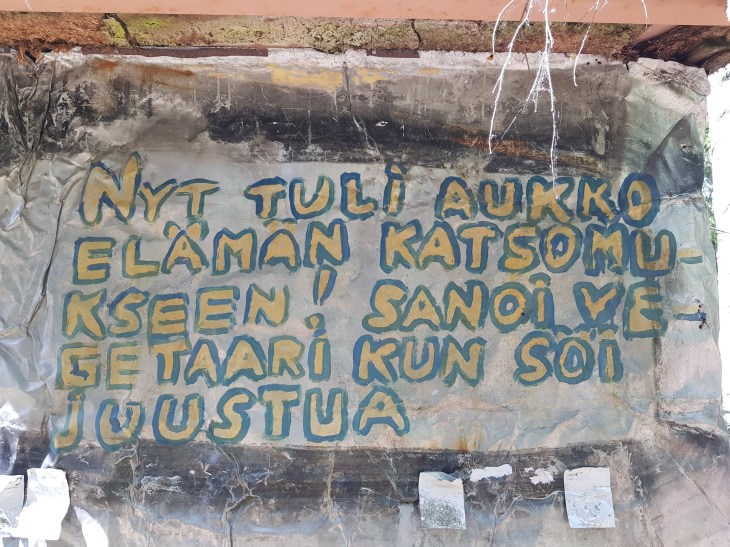 NYT TULI AUKKO
ELÄMÄN KATSOMU-
KSEEN! SANOI VE-
GETAARI KUN SÖI
JUUSTUA